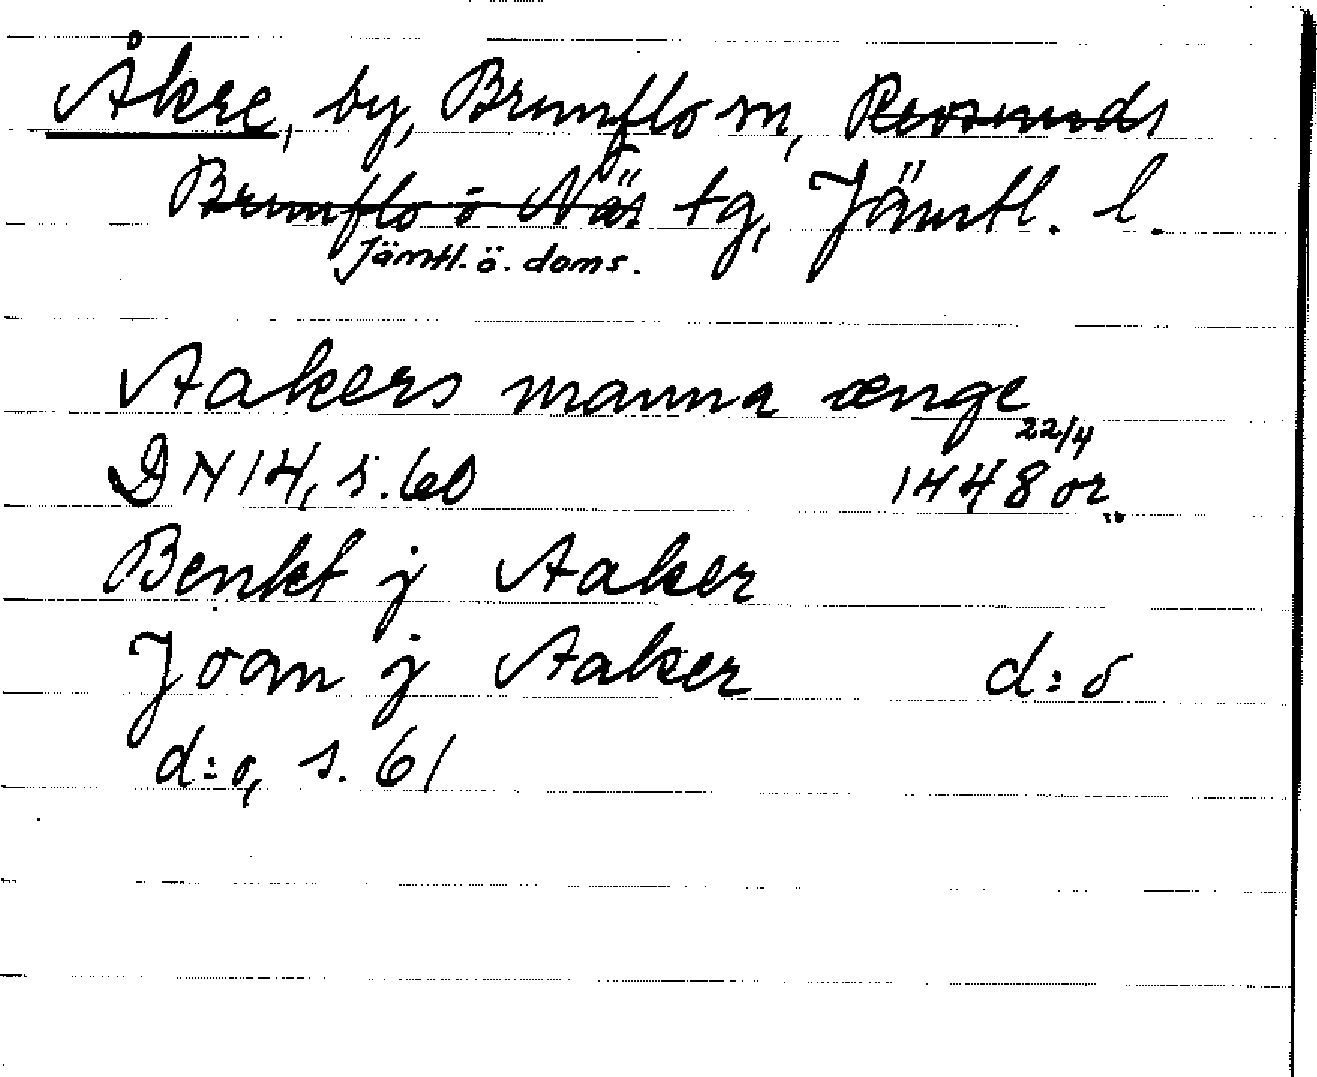 Åkre, by, Brunflo sn, Revsunds
Brunflo o Näs tg, Jämtl. l.
Jämtl. ö. doms.
Aakers manna ænge
22/4
DN 14, s. 60 1448 or.
Benkt j Aaker
Joan j Aaker d:o
d:o, s. 61